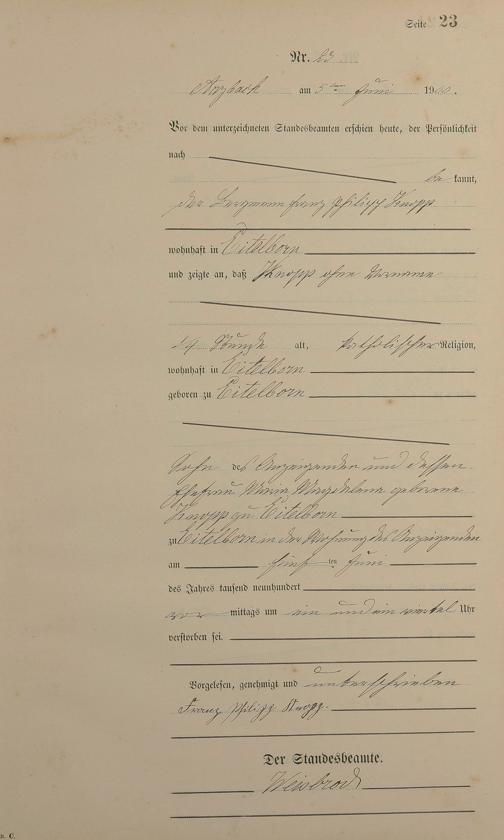 Seite 23
Nr. 23
Arzbach am 5ten Juni 1900.
Vor dem unterzeichneten Standesbeamten erschien heute, der Persönlichkeit
nach
bekannt,
der Bergmann Franz Philipp Knopp
wohnhaft in Eitelborn
und zeigte an, daß Knopp ohne Vorname
Stunde alt, katholischer Religion,
wohnhaft in Eitelborn
geboren zu Eitelborn
Sohn des Anzeigenden und dessen
Ehefrau Maria Magdalena geborene
Knopp zu Eitelborn
zu Eitelborn in der Wohnung des Anzeigenden
am fünften Juni
des Jahres tausend neunhundert
vor mittags um ein und ein viertel Uhr
verstorben sei.
Vorgelesen, genehmigt und unterschrieben
Franz Philipp Knopp.
Der Standesbeamte.
Weisbrod
n. C.